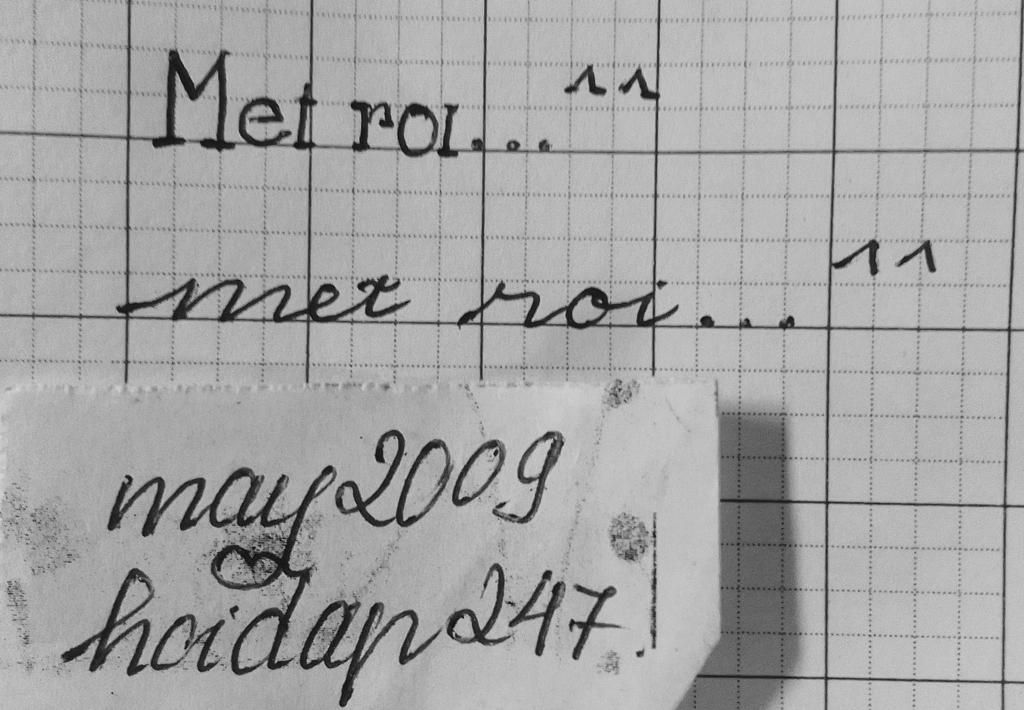 Met roi... ^^
met roi... ^^
may2009
hoidap247.